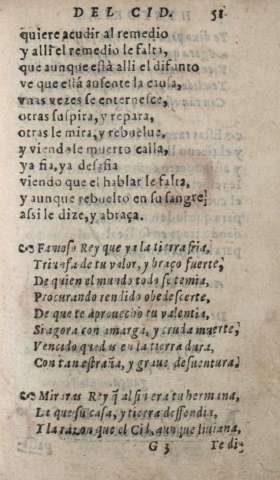 DEL CID. 58
quiere acudir al remedio
y alli el remedio le falta,
que aunque està alli el difunto
ve que està ausente la causa,
vnas vezes se enternesce,
otras suspira, y repara,
otras le mira, y rebuelue,
y viendole muerto calla,
ya fia, ya desafia
viendo que el hablar le falta,
y aunque rebuelto en su sangre,
assi le dize, y abraça.
Famoso Rey que ya la tierra fria,
Triunfa de tu valor, y braço fuerte,
De quien el mundo todo se temia,
Procurando rendido obedescerte,
De que te aprouecho tu valentia,
Si agora con amarga, y cruda muerte,
Vencido quedas en la tierra dura,
Con tan estraña, y graue desuentura.
Miraras Rey q̃ al fin era tu hermana,
La que su casa, y tierra deffendia,
Y la razon que el Cid, aunque liuiana,
G 3 Te di